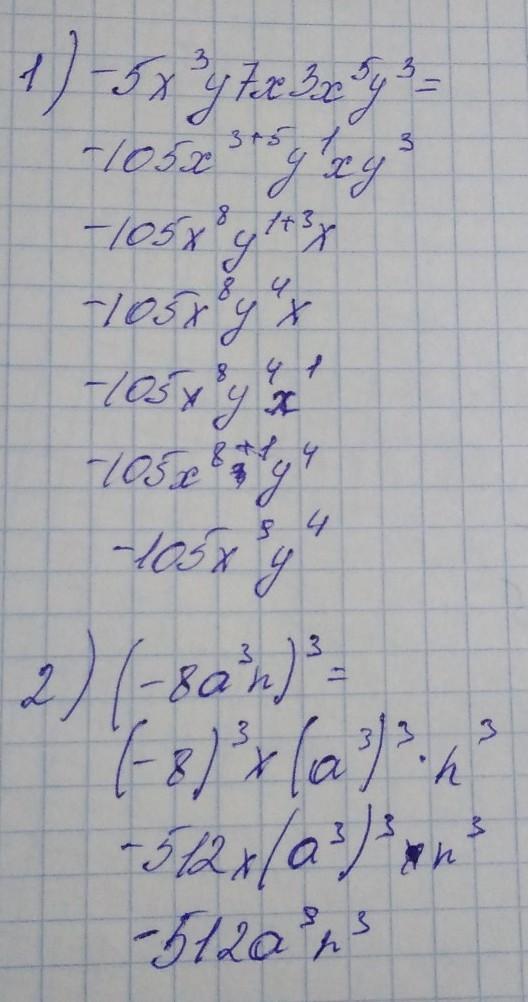 1) -5x³y7x3x⁵y³=
-105x³⁺⁵y¹xy³
-105x⁸y¹⁺³x
-105x⁸y⁴x
-105x⁸y⁴x¹
-105x⁸⁺¹y⁴
-105x⁹y⁴
2) (-8a³n)³=
(-8)³x(a³)³·n³
-512x(a³)³xn³
-512a⁹n³